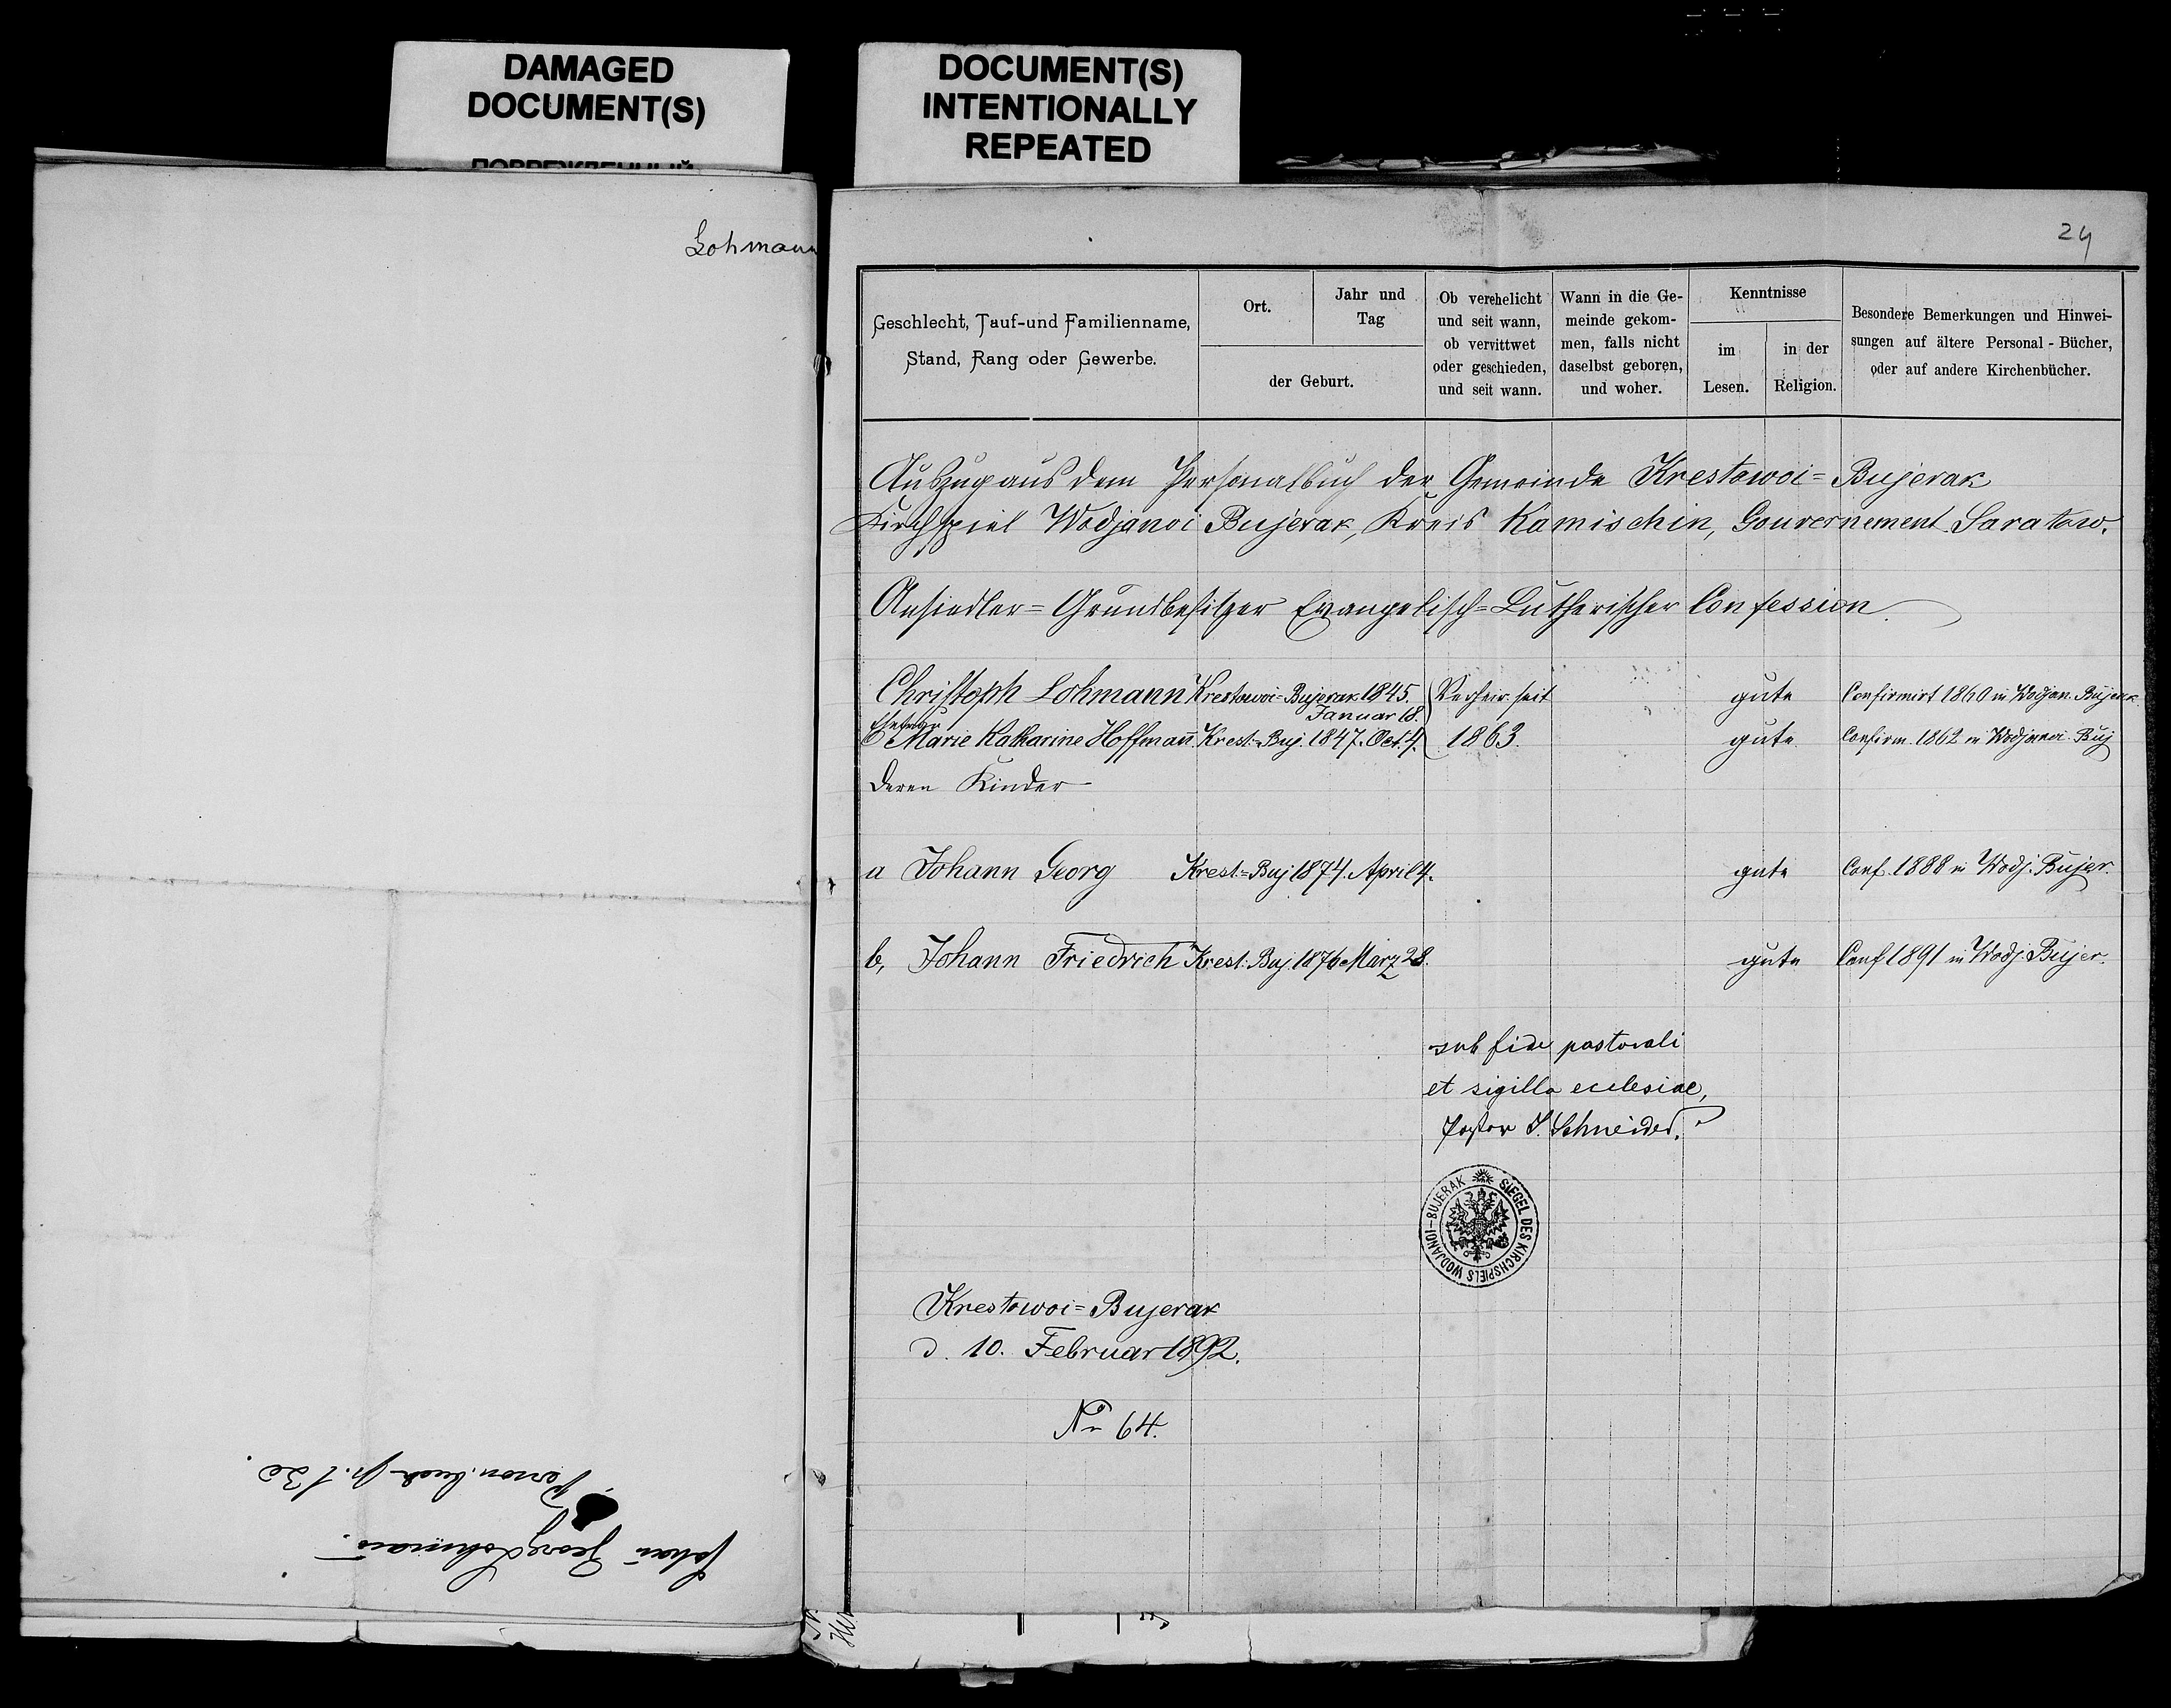 DAMAGED
DOCUMENT(S)
DOCUMENT(S)
INTENTIONALLY
REPEATED
Lohmann
Johan̄ Georg Lohman̄.
Personbuch p. 130.
24
Geschlecht, Tauf-und Familienname,
Stand, Rang oder Gewerbe.
Ort.
Jahr und
Tag
der Geburt.
Ob verehelicht
und seit wann,
ob vervittwet
oder geschieden,
und seit wann.
Wann in die Ge-
meinde gekom-
men, falls nicht
daselbst geboren,
und woher.
Kenntnisse
im
Lesen.
in der
Religion.
Besondere Bemerkungen und Hinwei-
sungen auf ältere Personal - Bücher,
oder auf andere Kirchenbücher.
Auszug aus dem Personalbuch der Gemeinde Krestowoi=Bujerak
Kirchspiel Wodjanoi Bujerak, Kreis Kamischin, Gouvernement Saratow.
Ansiedler=Grundbesitzer Evangelisch=Lutherischer Confession.
Christoph Lohmann Krestowoi=Bujerak 1845. Januar 18. Verheir. seit gute Confirmirt 1860 in Wodjan. Bujerak
Ehefrau
Marie Katharine Hoffman̄. Krest.=Buj. 1847. Oct. 4. 1863. gute Confirm. 1862 in Wodjanoi. Buj
deren Kinder
a Johann Georg Krest.=Buj 1874. April 4. gute Conf. 1888 in Wodj. Bujer.
b, Johann Friedrich Krest. Buj 1876 März 28. gute Conf 1891 in Wodj. Bujer.
sub fide pastorali
et sigillo ecclesiae,
Pastor S. Schneider.
SIEGEL DES KIRCHSPIELS WODJANOI-BUJERAK
Krestowoi=Bujerak
d. 10. Februar 1892.
No 64.